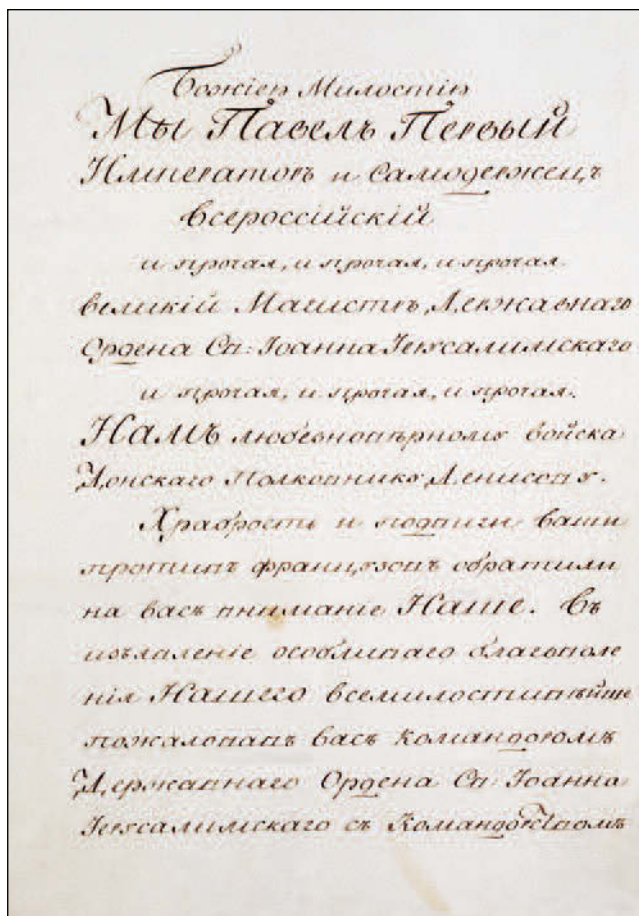 Божіею Милостію
Мы Павелъ Первый
Императоръ и Самодержецъ
Всероссійскій
и прочая, и прочая, и прочая
Великій Магистръ Державнаго
Ордена Св: Іоанна Іерусалимскаго
и прочая, и прочая, и прочая.
Намъ любезновѣрному Войска
Донскаго Полковнику Денисову.
Храбрость и подвиги ваши
противъ французовъ обратили
на васъ вниманіе Наше. Въ
изъявленіе особливаго благоволе
нія Нашего всемилостивѣйше
пожаловавъ васъ командоромъ
Державнаго Ордена Св: Іоанна
Іерусалимскаго съ Командорствомъ